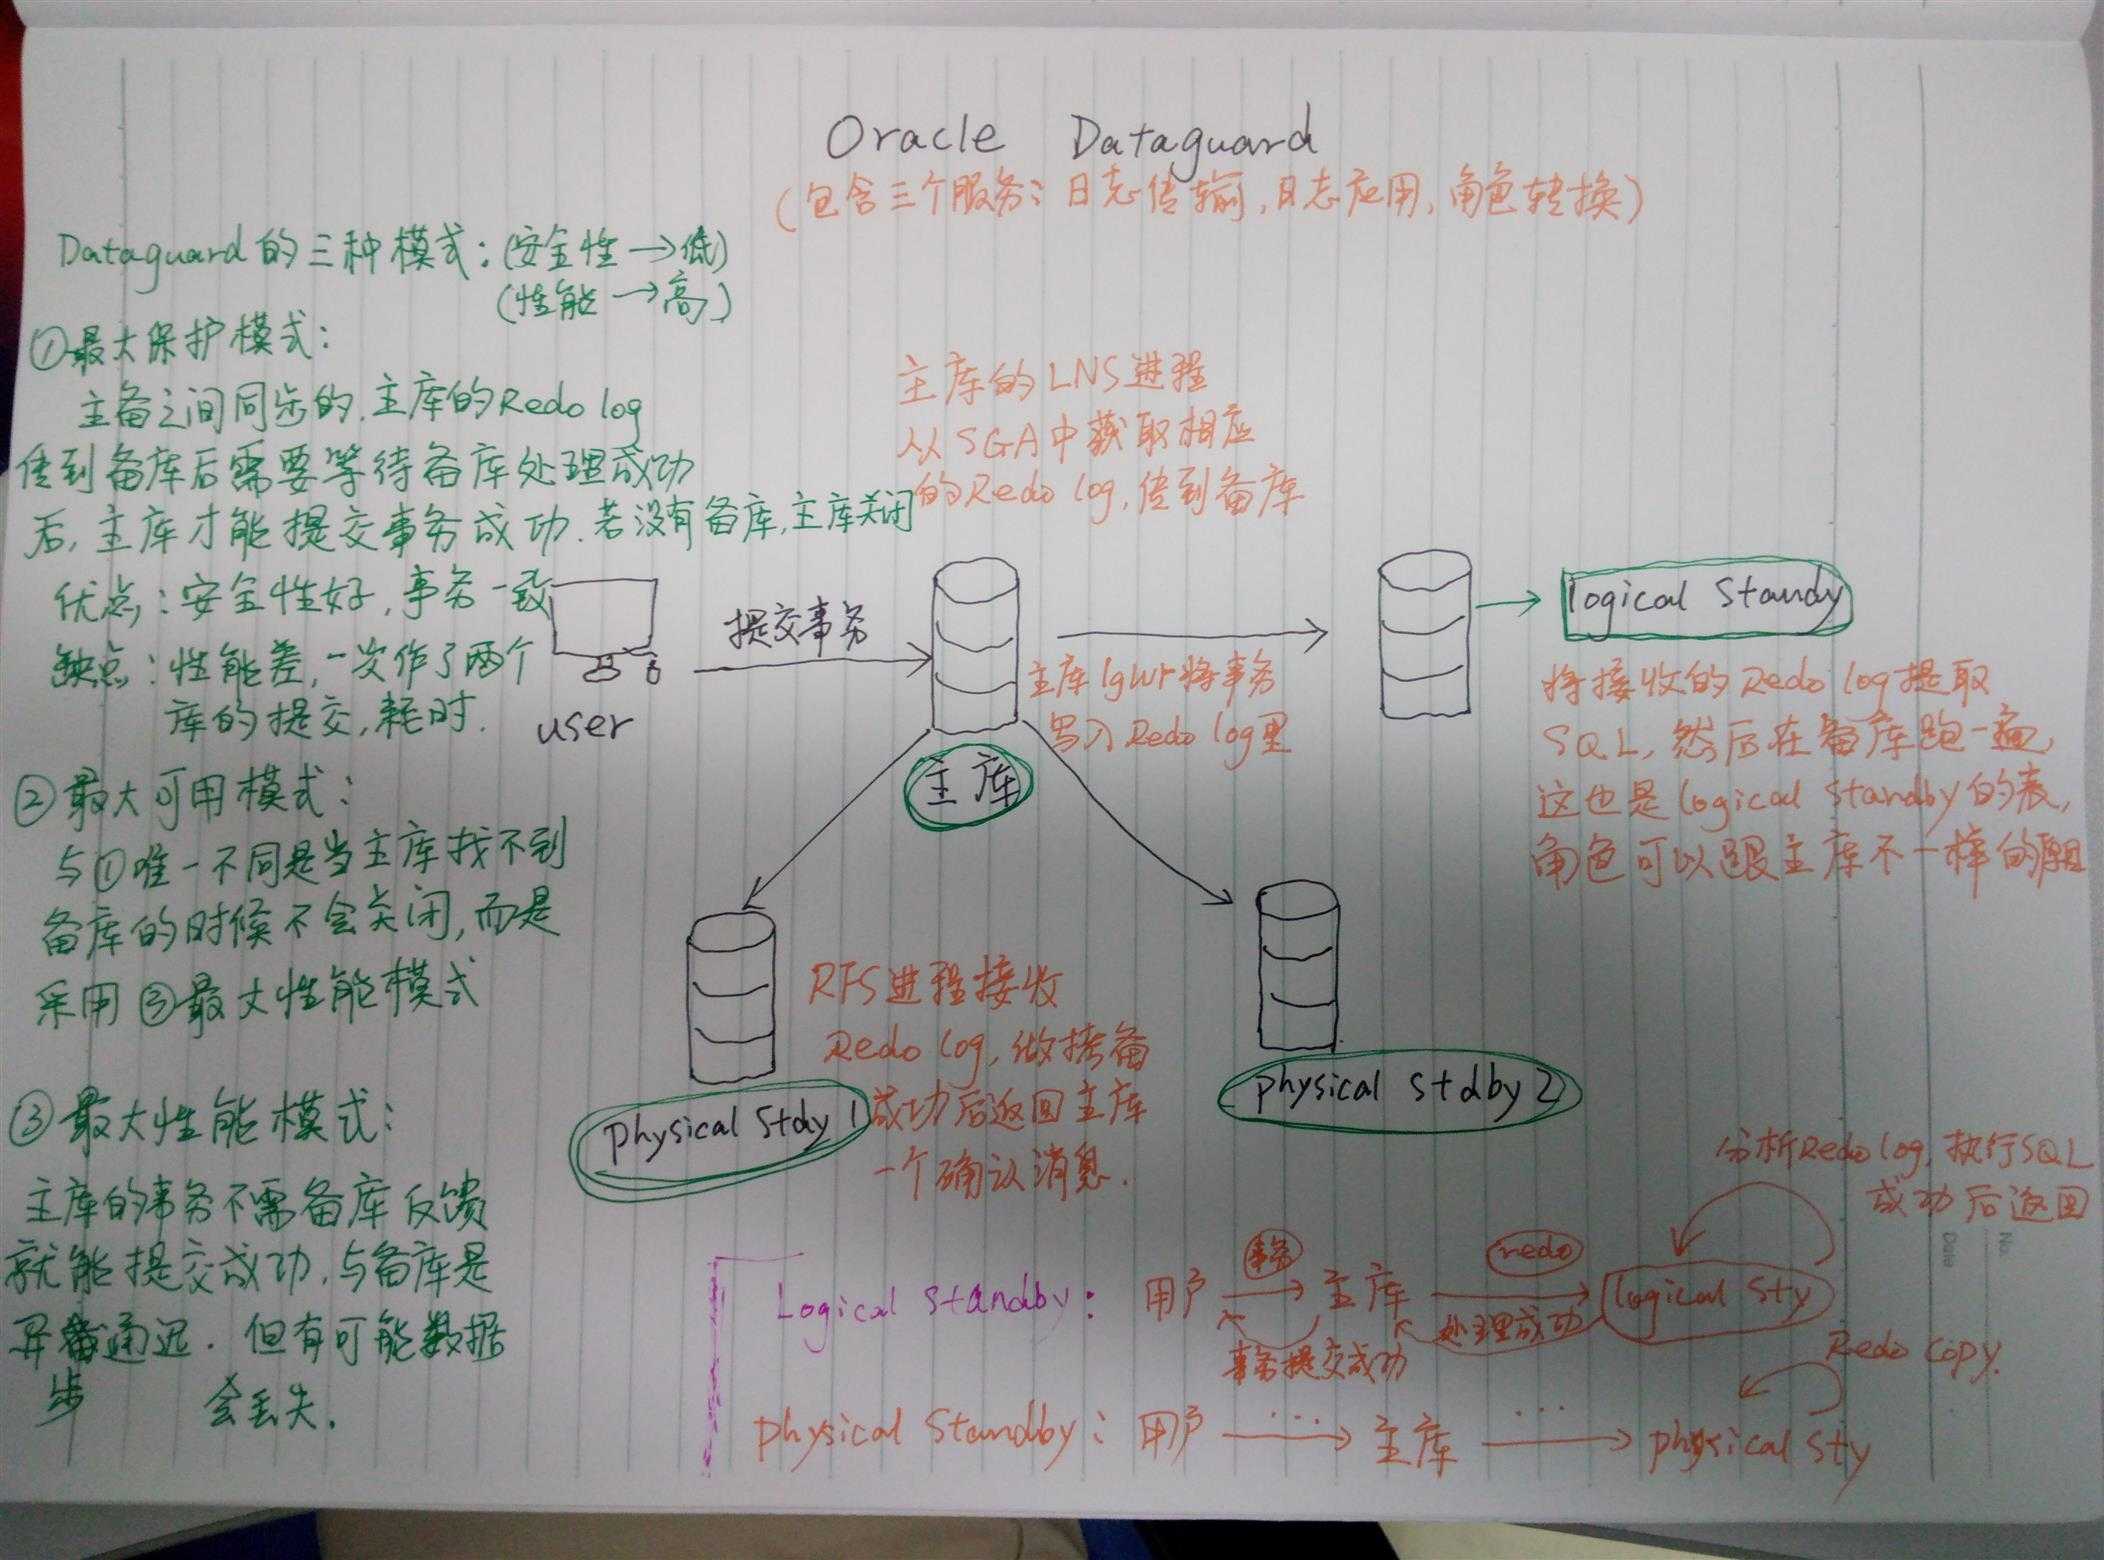 Oracle Dataguard
(包含三个服务: 日志传输, 日志应用, 角色转换)
Dataguard的三种模式: (安全性→低)
(性能→高)
①最大保护模式:
主备之间同步的. 主库的Redo log
传到备库后需要等待备库处理成功
后, 主库才能提交事务成功. 若没有备库, 主库关闭
优点: 安全性好, 事务一致
缺点: 性能差, 一次作了两个
库的提交, 耗时.
②最大可用模式:
与①唯一不同是当主库找不到
备库的时候不会关闭, 而是
采用③最大性能模式
③最大性能模式:
主库的事务不需备库反馈
就能提交成功, 与备库是
异 通迅. 但有可能数据
步 会丢失.
主库的LNS进程
从SGA中获取相应
的Redo log, 传到备库
user
提交事务
主库
主库lgwr将事务
写入Redo log里
logical Standy
将接收的Redo log提取
SQL, 然后在备库跑一遍,
这也是logical Standby的表,
角色可以跟主库不一样的
Physical Stdy 1
RFS进程接收
Redo log, 做拷备
成功后返回主库
一个确认消息.
physical Stdby 2
分析Redo log, 执行SQL
成功后返回
Logical Standby: 用户 事务 主库 redo logical Sty
事务提交成功 处理成功
Redo Copy.
physical Standby: 用户 ... 主库 ... physical Sty
No.
Date